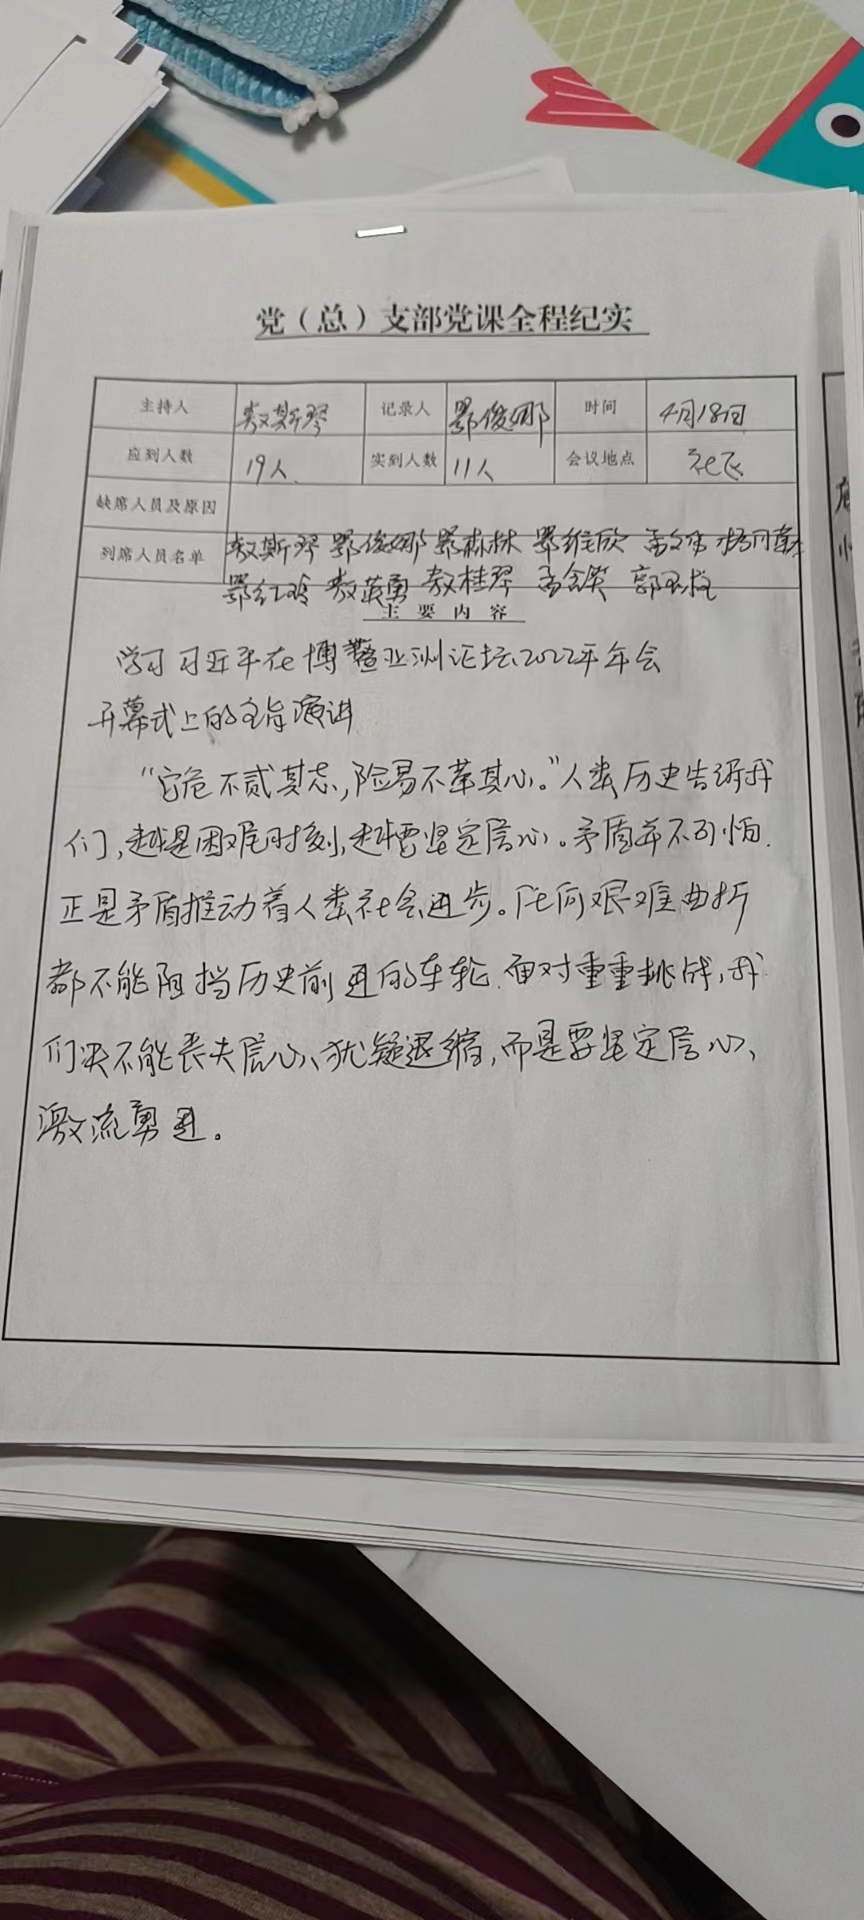 党（总）支部党课全程纪实
主持人 敖斯琴 记录人 鄂俊娜 时间 4月18日
应到人数 19人 实到人数 11人 会议地点
缺席人员及原因
到席人员名单 敖斯琴 鄂俊娜 鄂森林 鄂维欣
鄂红玲 敖英勇 敖桂琴 孟金英 郭玉柱
主要内容
学习习近平在博鳌亚洲论坛2022年年会
开幕式上的主旨演讲
“安危不贰其志，险易不革其心。”人类历史告诉我
们，越是困难时刻，越要坚定信心。矛盾并不可怕.
正是矛盾推动着人类社会进步。任何艰难曲折
都不能阻挡历史前进的车轮.面对重重挑战，我
们决不能丧失信心、犹疑退缩，而是要坚定信心、
激流勇进。